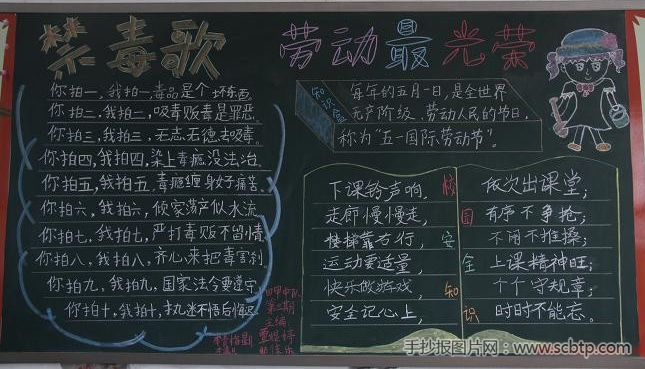 禁毒歌
你拍一,我拍一,毒品是个坏东西。
你拍二,我拍二,吸毒贩毒是罪恶。
你拍三,我拍三,无志石德去吸毒。
你拍四,我拍四,染上毒瘾没法治。
你拍五,我拍五,毒瘾缠身好痛苦。
你拍六,我拍六,倾家荡产似水流
你拍七,我拍七,严打毒贩不留情
你拍八,我拍八,齐心来把毒害刹
你拍九,我拍九,国家法令要遵守
你拍十,我拍十,执迷不悟后悔迟
四甲中队
第二期
主编
劳动最光荣
知识盒
每年的五月一日,是全世界
无产阶级、劳动人民的节日,
称为“五一国际劳动节”。
校园安全知识
下课铃声响,
走廊慢慢走,
楼梯靠右行,
运动要适量,
快乐做游戏,
安全记心上,
依次出课堂;
有序不争抢;
不闹不推搡;
上课精神旺;
个个守规章;
时时不能忘。
手抄报图片网:www.scbtp.com